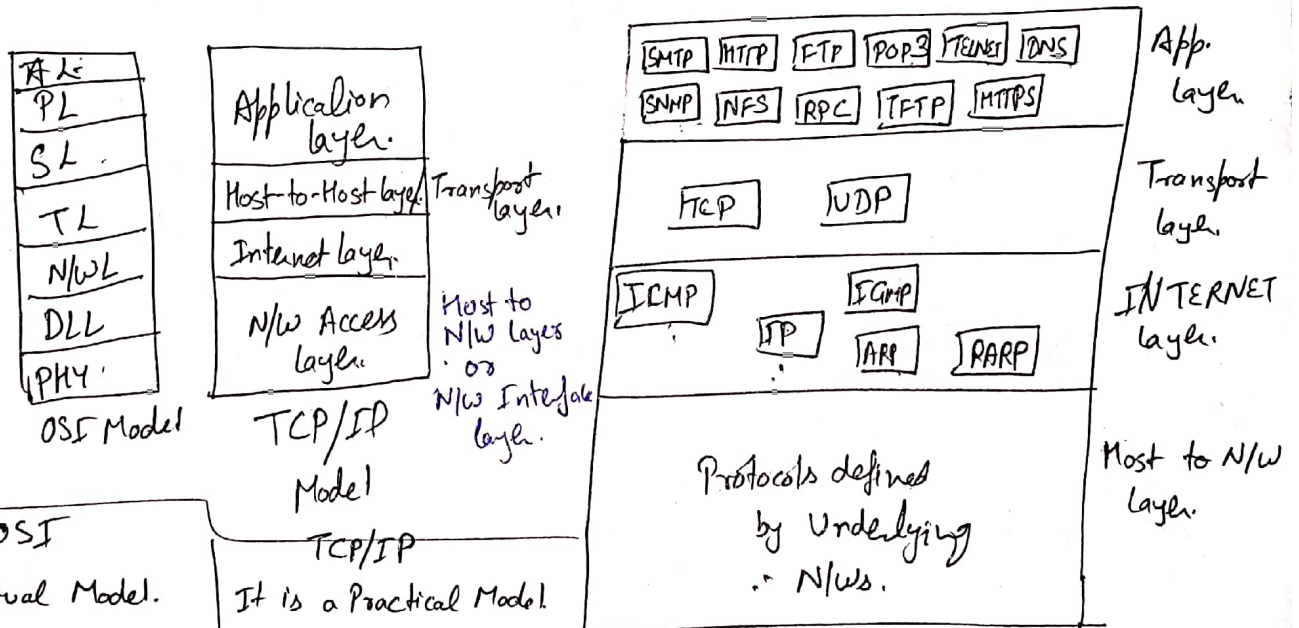 AL
PL
SL.
TL
N/WL
DLL
PHY.
OSI Model
Application
layer.
Host-to-Host layer.
Internet layer.
N/W Access
layer.
TCP/IP
Model
Transport
layer.
Host to
N/W layer
or
N/W Interface
layer.
SMTP HTTP FTP POP3 TELNET DNS
SNMP NFS RPC TFTP HTTPS
TCP UDP
ICMP IGMP
IP ARP RARP
Protocols defined
by Underlying
N/Ws.
App.
layer.
Transport
layer.
INTERNET
layer.
Host to N/W
layer.
OSI TCP/IP
ual Model. It is a Practical Model.